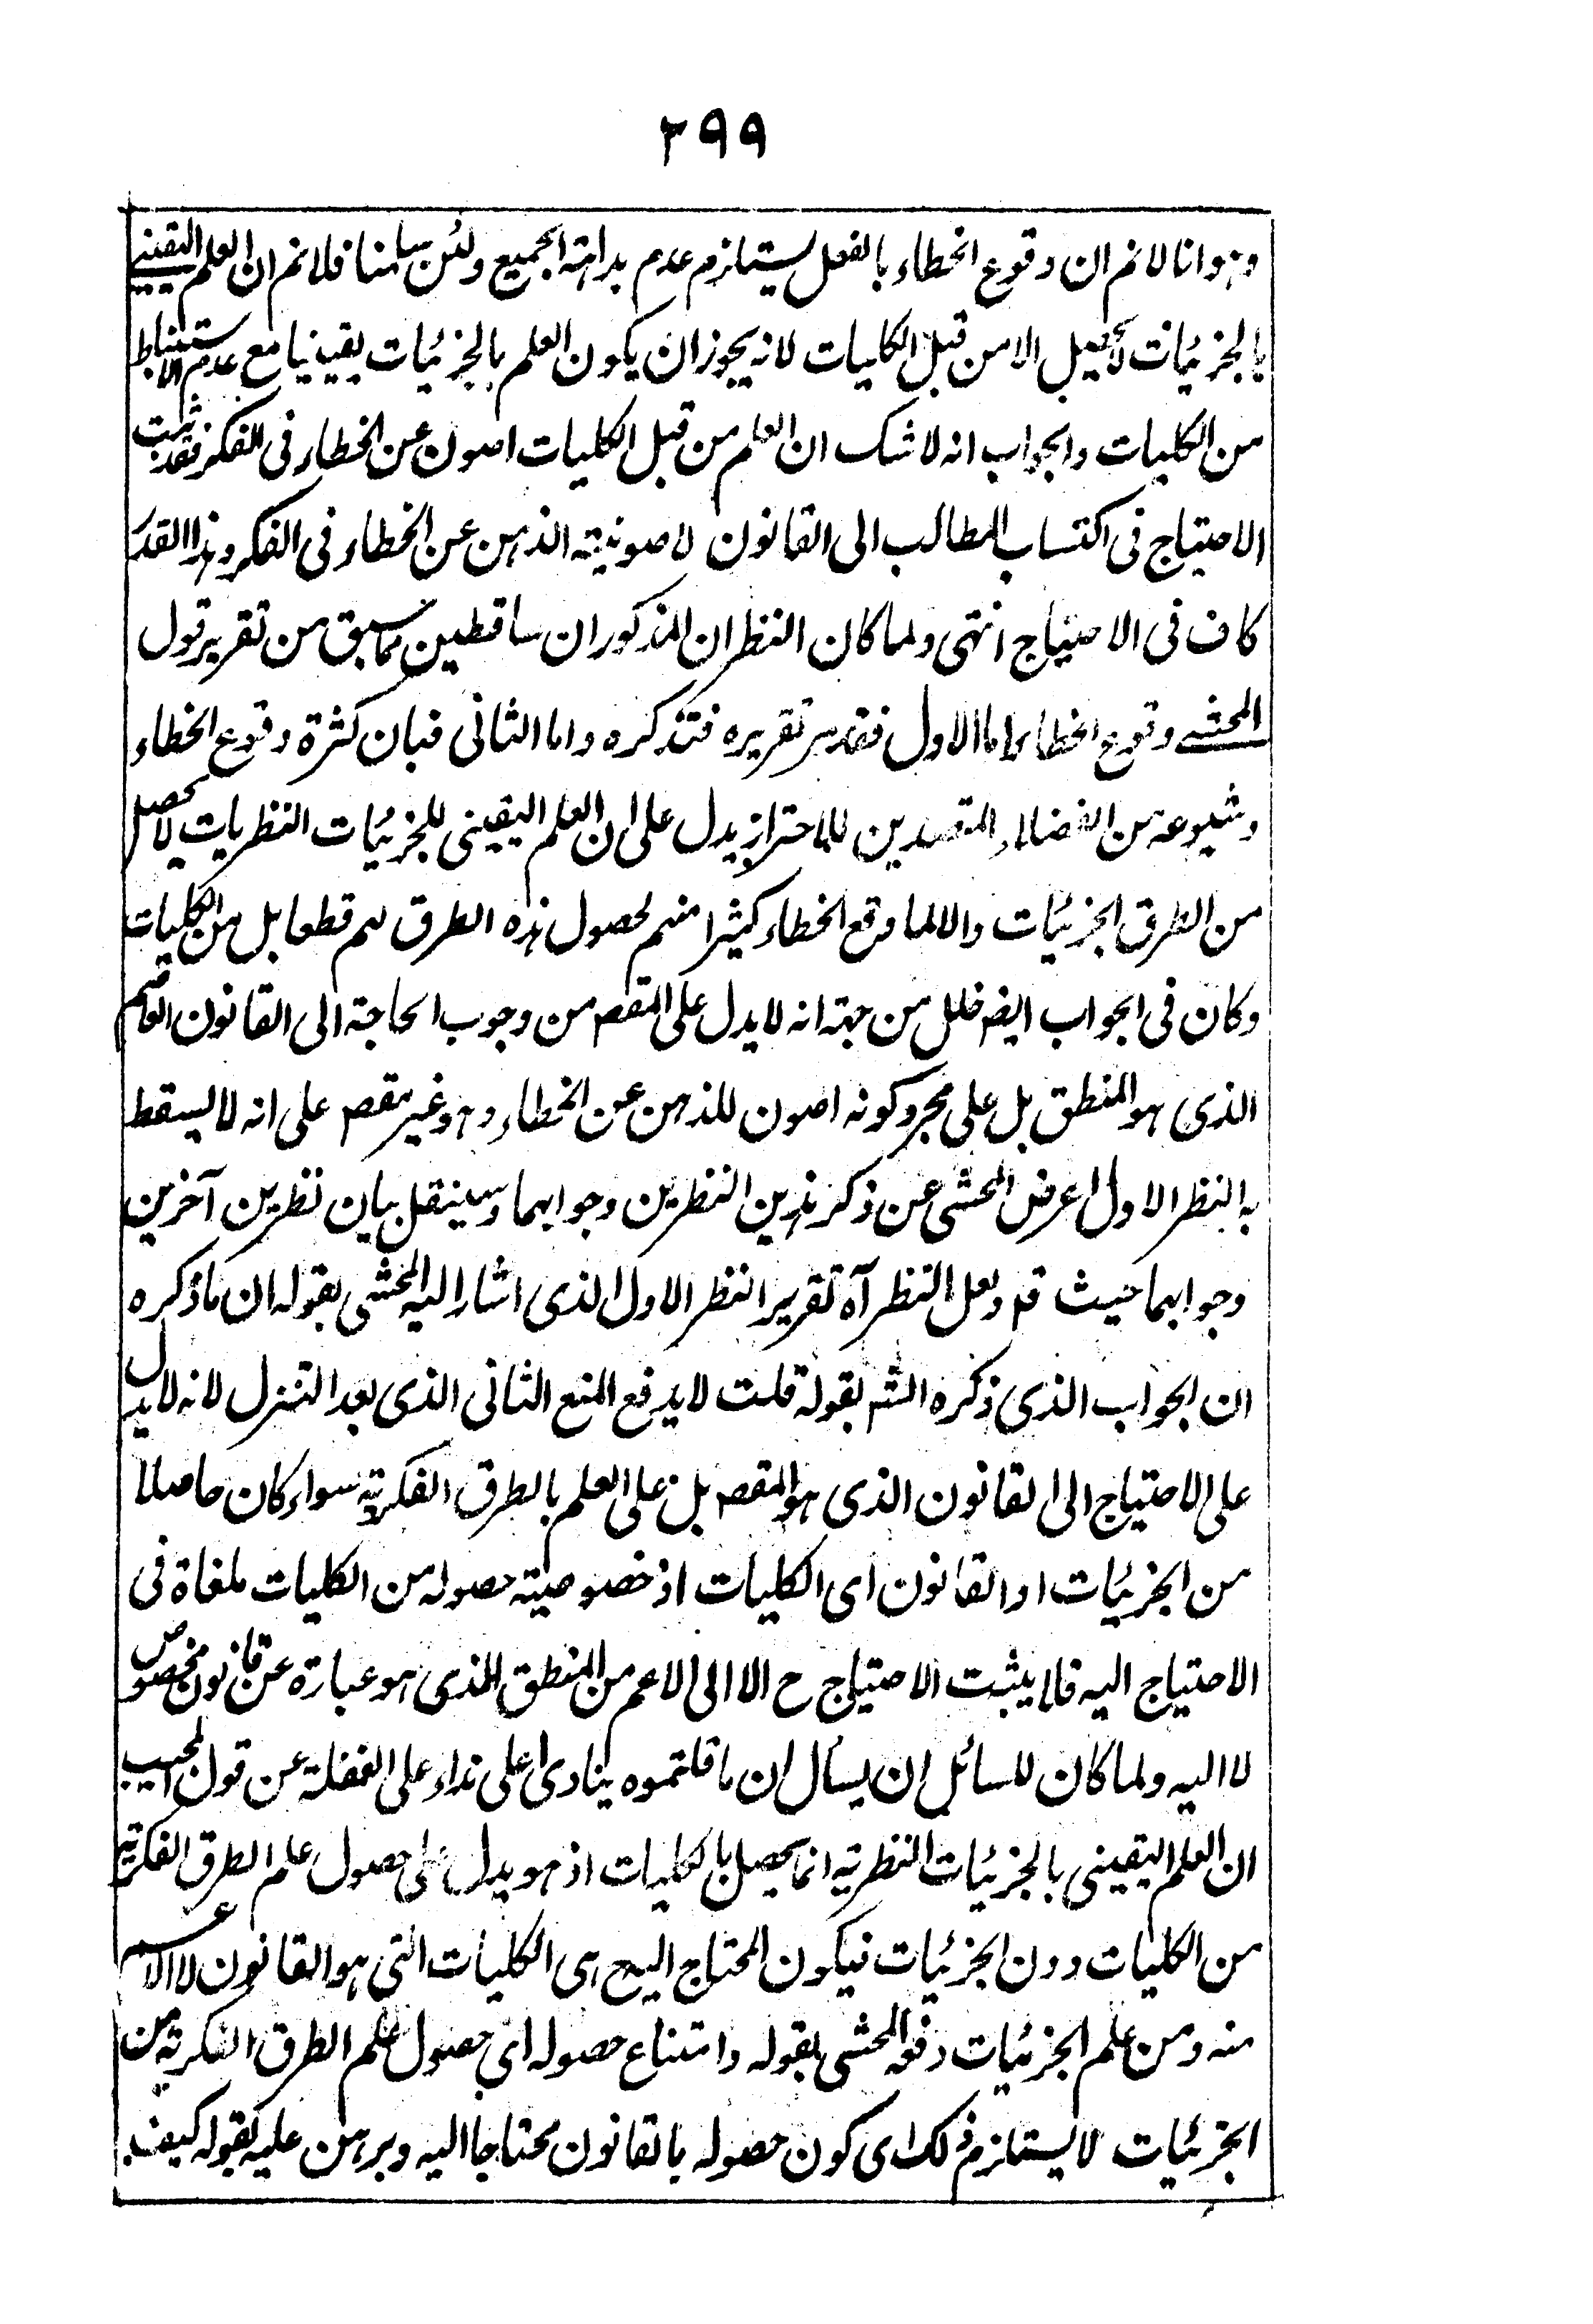 ٢٩٩
وهو انا لا نم ان وقوع الخطاء بالفعل يستلزم عدم بداهة الجميع ولئن سلمنا فلا نم ان العلم اليقيني
بالجزئيات لا يحصل الا من قبل الكليات لانه يجوز ان يكون العلم بالجزئيات يقينيا مع عدم الاستنباط
من الكليات والجواب انه لا شك ان العلم من قبل الكليات اصون عن الخطاء فى الفكر فقد ثبت
الاحتياج فى اكتساب المطالب الى القانون لاصونية الذهن عن الخطاء فى الفكر وهذا القدر
كاف فى الاحتياج انتهى ولما كان النظران المذكوران ساقطين مما سبق من تقرير قول
المحشى وقوع الخطاء اما الاول فقد مر تقريره فتذكره واما الثانى فبان كثرة وقوع الخطاء
وشيوعه من الفضلاء المتصدين للاحتراز يدل على ان العلم اليقينى للجزئيات النظريات لا يحصل
من الطرق الجزئيات والا لما وقع الخطاء كثيرا منهم لحصول هذه الطرق لهم قطعا بل من الكليات
وكان فى الجواب ايضه خلل من جهة انه لا يدل على المقصه من وجوب الحاجة الى القانون العاصم
الذى هو المنطق بل على مجرد كونه اصون للذهن عن الخطاء وهو غير مقصه على انه لا يسقط
به النظر الاول اعرض المحشى عن ذكر هذين النظرين وجوابهما وسينقل بيان نظرين آخرين
وجوابهما حيث قه ولعل النظر آه تقرير النظر الاول الذى اشار اليه المحشى بقوله ان ما ذكره
ان الجواب الذى ذكره الشه بقوله قلت لا يدفع المنع الثانى الذى بعد التنزل لانه لا يدل
على الاحتياج الى القانون الذى هو المقصه بل على العلم بالطرق الفكرية سواء كان حاصلا
من الجزئيات او القانون اى الكليات اذ خصوصية حصوله من الكليات ملغاة فى
الاحتياج اليه فلا يثبت الاحتياج ح الا الى الاعم من المنطق الذى هو عبارة عن قانون مخصوص
لا اليه ولما كان للسائل ان يسأل ان ما قلتموه ينادى اعلى نداء على الغفلة عن قول المجيب
ان العلم اليقينى بالجزئيات النظرية انما يحصل بالكليات اذ هو يدل على حصول علم الطرق الفكرية
من الكليات دون الجزئيات فيكون المحتاج اليه ح هى الكليات التى هو القانون لا الاعم
منه ومن علم الجزئيات دفعه المحشى بقوله وامتناع حصوله اى حصول علم الطرق الفكرية من
الجزئيات لا يستلزم ذلك اى كون حصوله بالقانون محتاجا اليه وبرهن عليه بقوله كيف